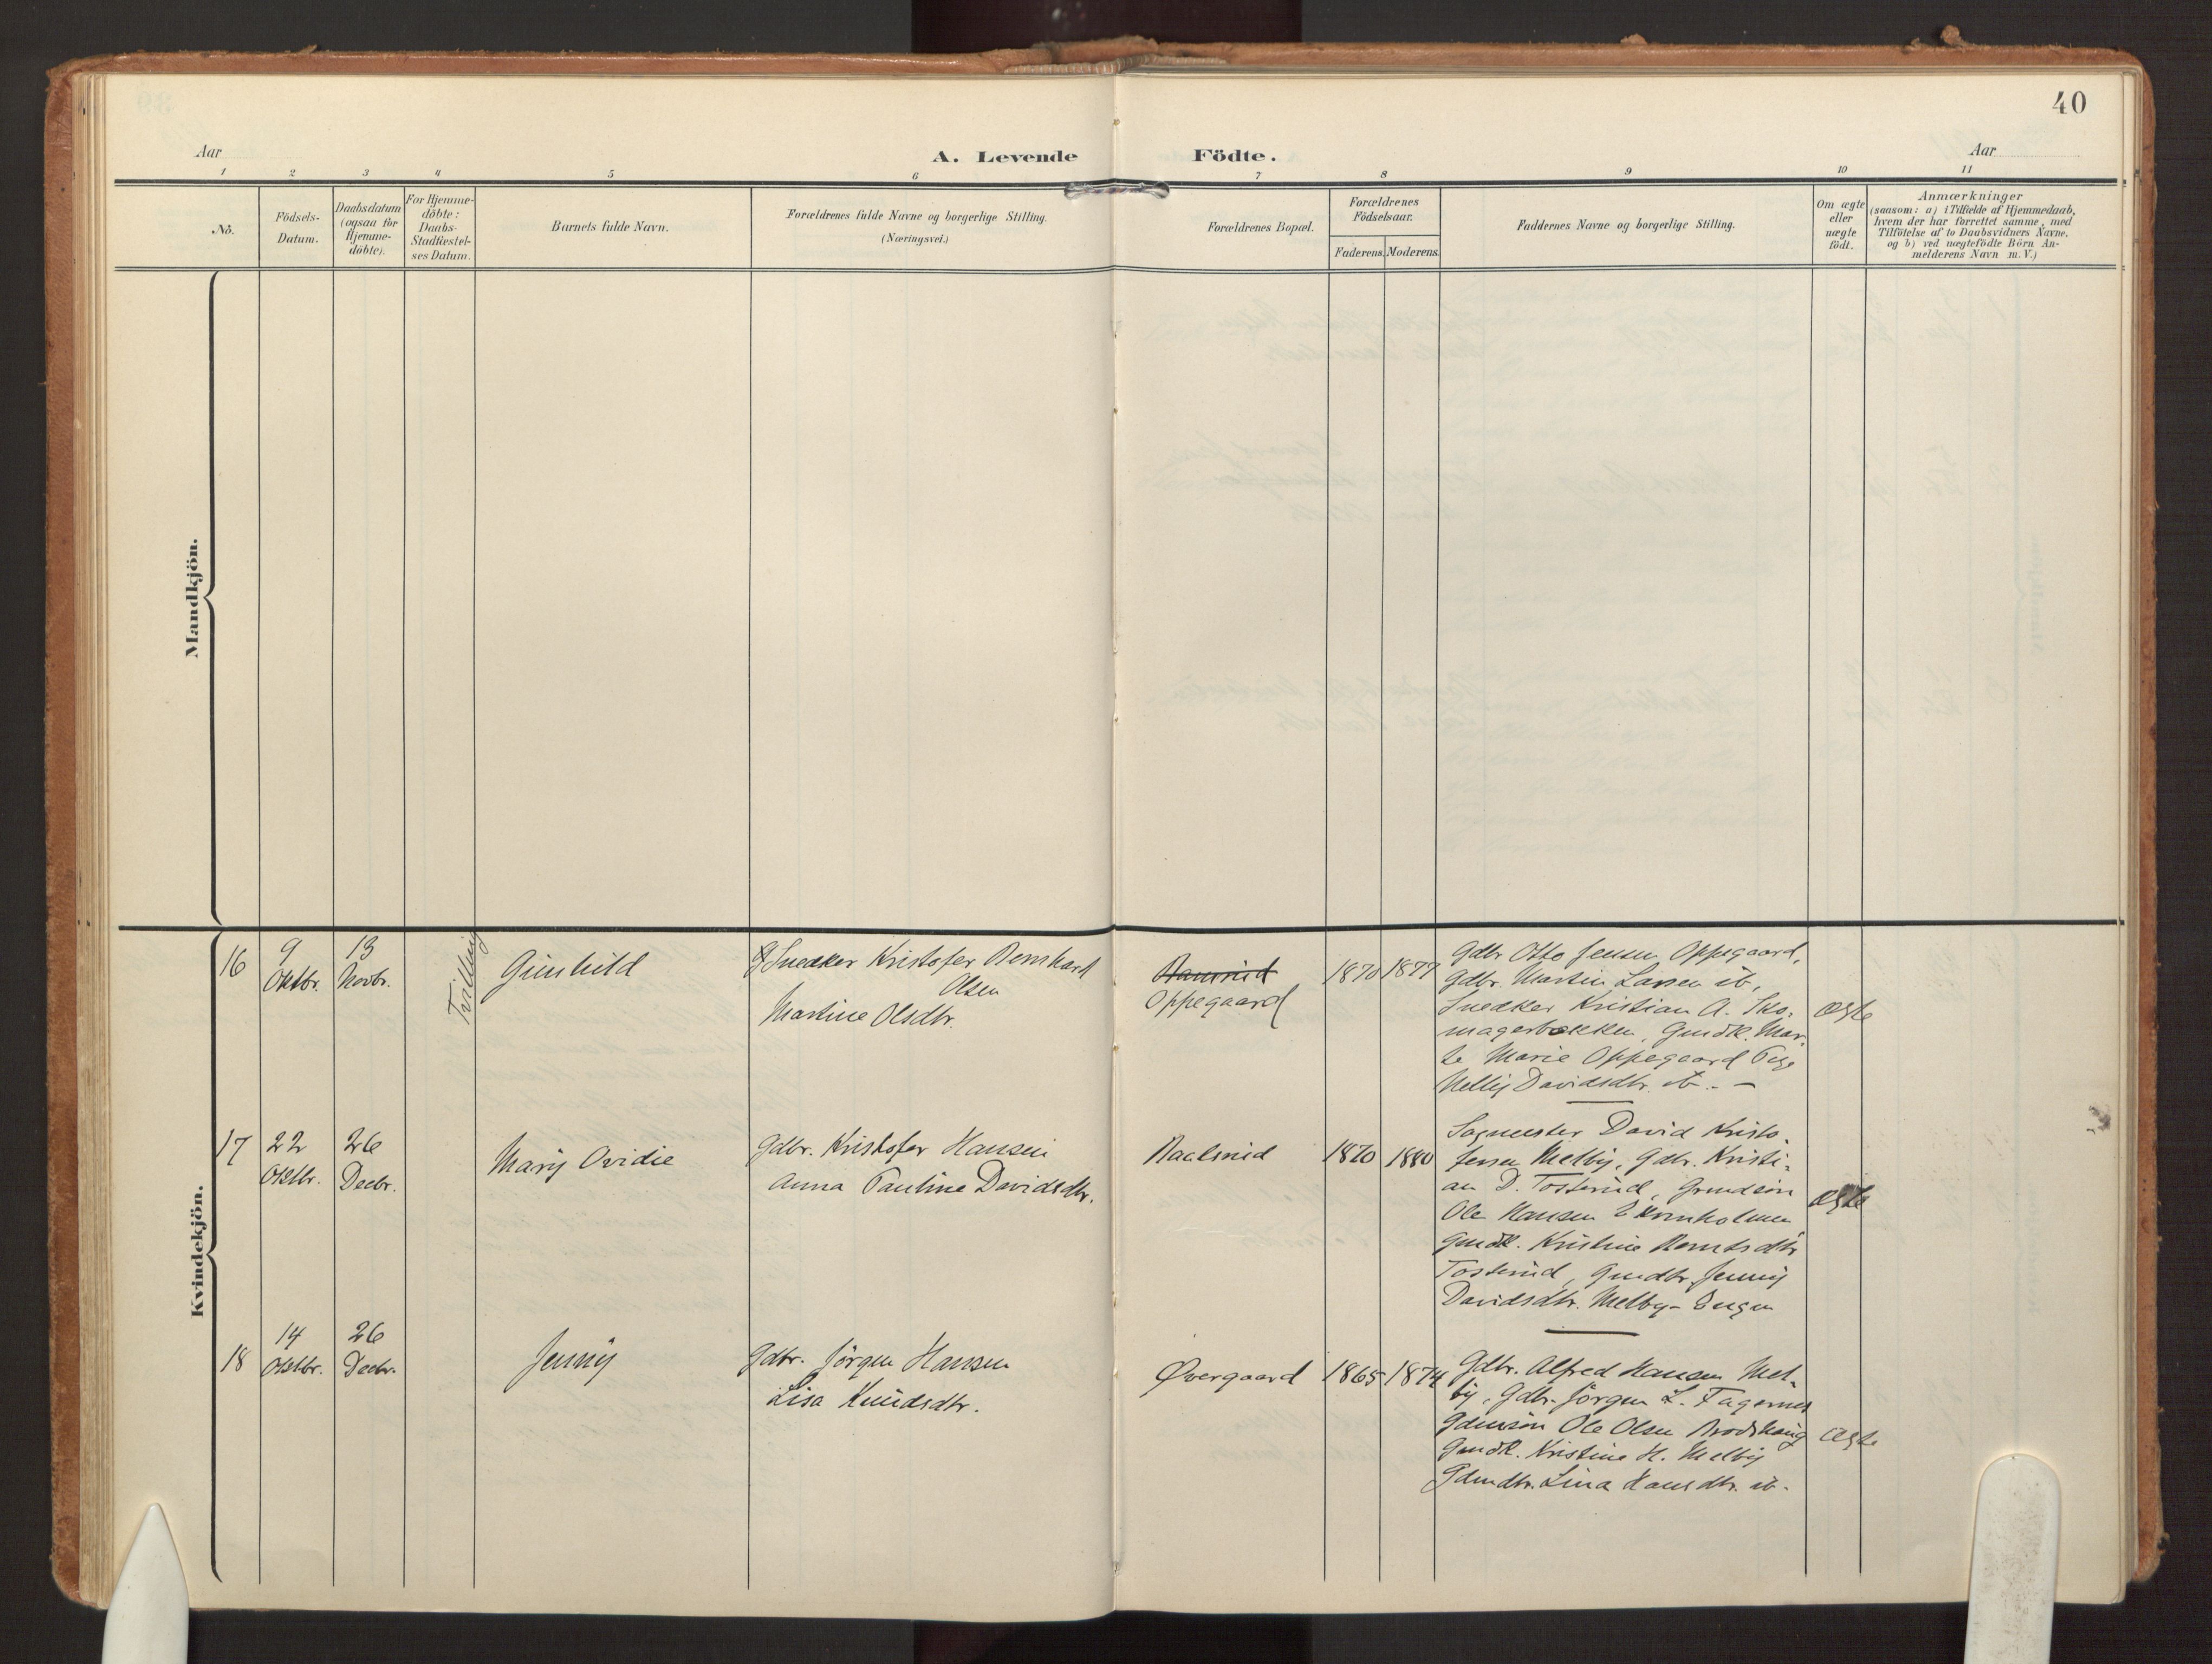 40
Aar
A. Levende Födte.
Aar
1 2 3 4 5 6 7 8 9 10 11
No.
Födsels-
Datum.
Daabsdatum
(ogsaa för
Hjemme-
döbte).
For Hjemme-
döbte:
Daabs-
Stadfæstel-
ses Datum.
Barnets fulde Navn.
Forældrenes fulde Navne og borgerlige Stilling.
(Næringsvei.)
Forældrenes Bopæl.
Forældrenes
Födselsaar.
Faderens. Moderens.
Faddernes Navne og borgerlige Stilling.
Om ægte
eller
uægte
födt.
Anmærkninger
(saasom: a) i Tilfælde af Hjemmedaab,
hvem der har forrettet samme, med
Tilföielse af to Daabsvidners Navne.
og b) ved uægtefödte Börn An-
melderens Navn m. V.)
Mandkjön.
Kvindekjön.
16
9
Oktbr.
13
Novbr.
Tvilling
Gunhild
Snedker Kristofer Bernhard
Olsen
Martine Olsdtr.
Oppegaard
1870 1877
Gdbr Otto Jensen Oppegaard,
Gdbr. Martin Larsen ib,
Snedker Kristian A. Sko-
magerbækken, Gmdk. Mar-
te Marie Oppegaard Pige
Nelly Davidsdtr. ib. -
ægte
17
22
Oktbr.
26
Decbr.
Mary Ovidie
Gdbr. Kristofer Hansen
Anna Pauline Davidsdtr.
1870 1880
Sagmester David Kristo-
fersen Melby, Gdbr. Kristi-
an D. Tosterud, Grmdsön
Ole Hansen
Gmdk. Kristine Berntsdtr
Tosterud, Gmdtr. Jenny
Davidsdtr. Melby-Engen
ægte
18
14
Oktbr.
26
Decbr.
Jenny
Gdbr. Jörgen Hansen
Lisa Knudsdtr.
Övergaard
1865 1874
Gdbr. Alfred Hansen Mel-
by, Gdbr. Jörgen L. Fagernes
Gdmsön Ole Olsen
Gmdk. Kristine H. Melby
Gdmdtr. Lina Hansdtr. ib.
ægte